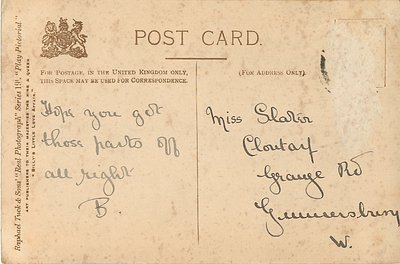 POST CARD.
FOR POSTAGE, IN THE UNITED KINGDOM ONLY,
THIS SPACE MAY BE USED FOR CORRESPONDENCE.
(FOR ADDRESS ONLY).
Hope you get
those parts off
all right
B.
Miss Slater
Clontarf
Grange Rd
Gunnersbury
W.
Raphael Tuck & Sons' "Real Photograph" Series
"Play Pictorial"
ART PUBLISHERS TO THEIR MAJESTIES THE KING & QUEEN
"BILLY'S LITTLE LOVE AFFAIR."